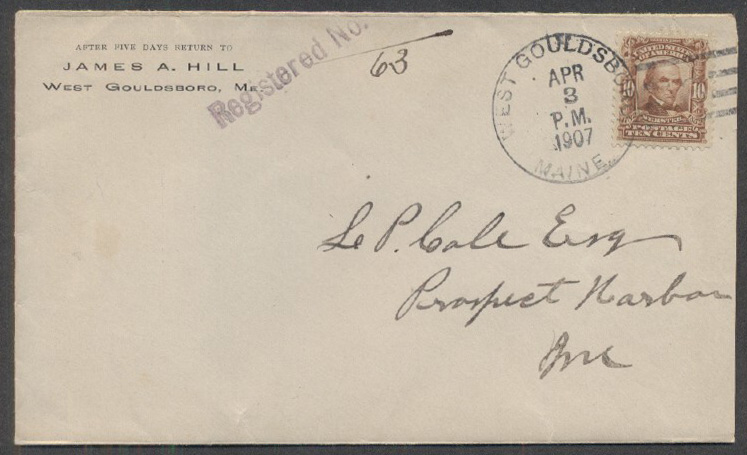 AFTER FIVE DAYS RETURN TO
JAMES A. HILL
WEST GOULDSBORO, ME.
Registered No.
63
WEST GOULDSBORO
APR
3
P.M.
1907
MAINE.
UNITED STATES
OF AMERICA
10 10
WEBSTER
POSTAGE
TEN CENTS
P. Cole Esq
Prospect Harbor
Me